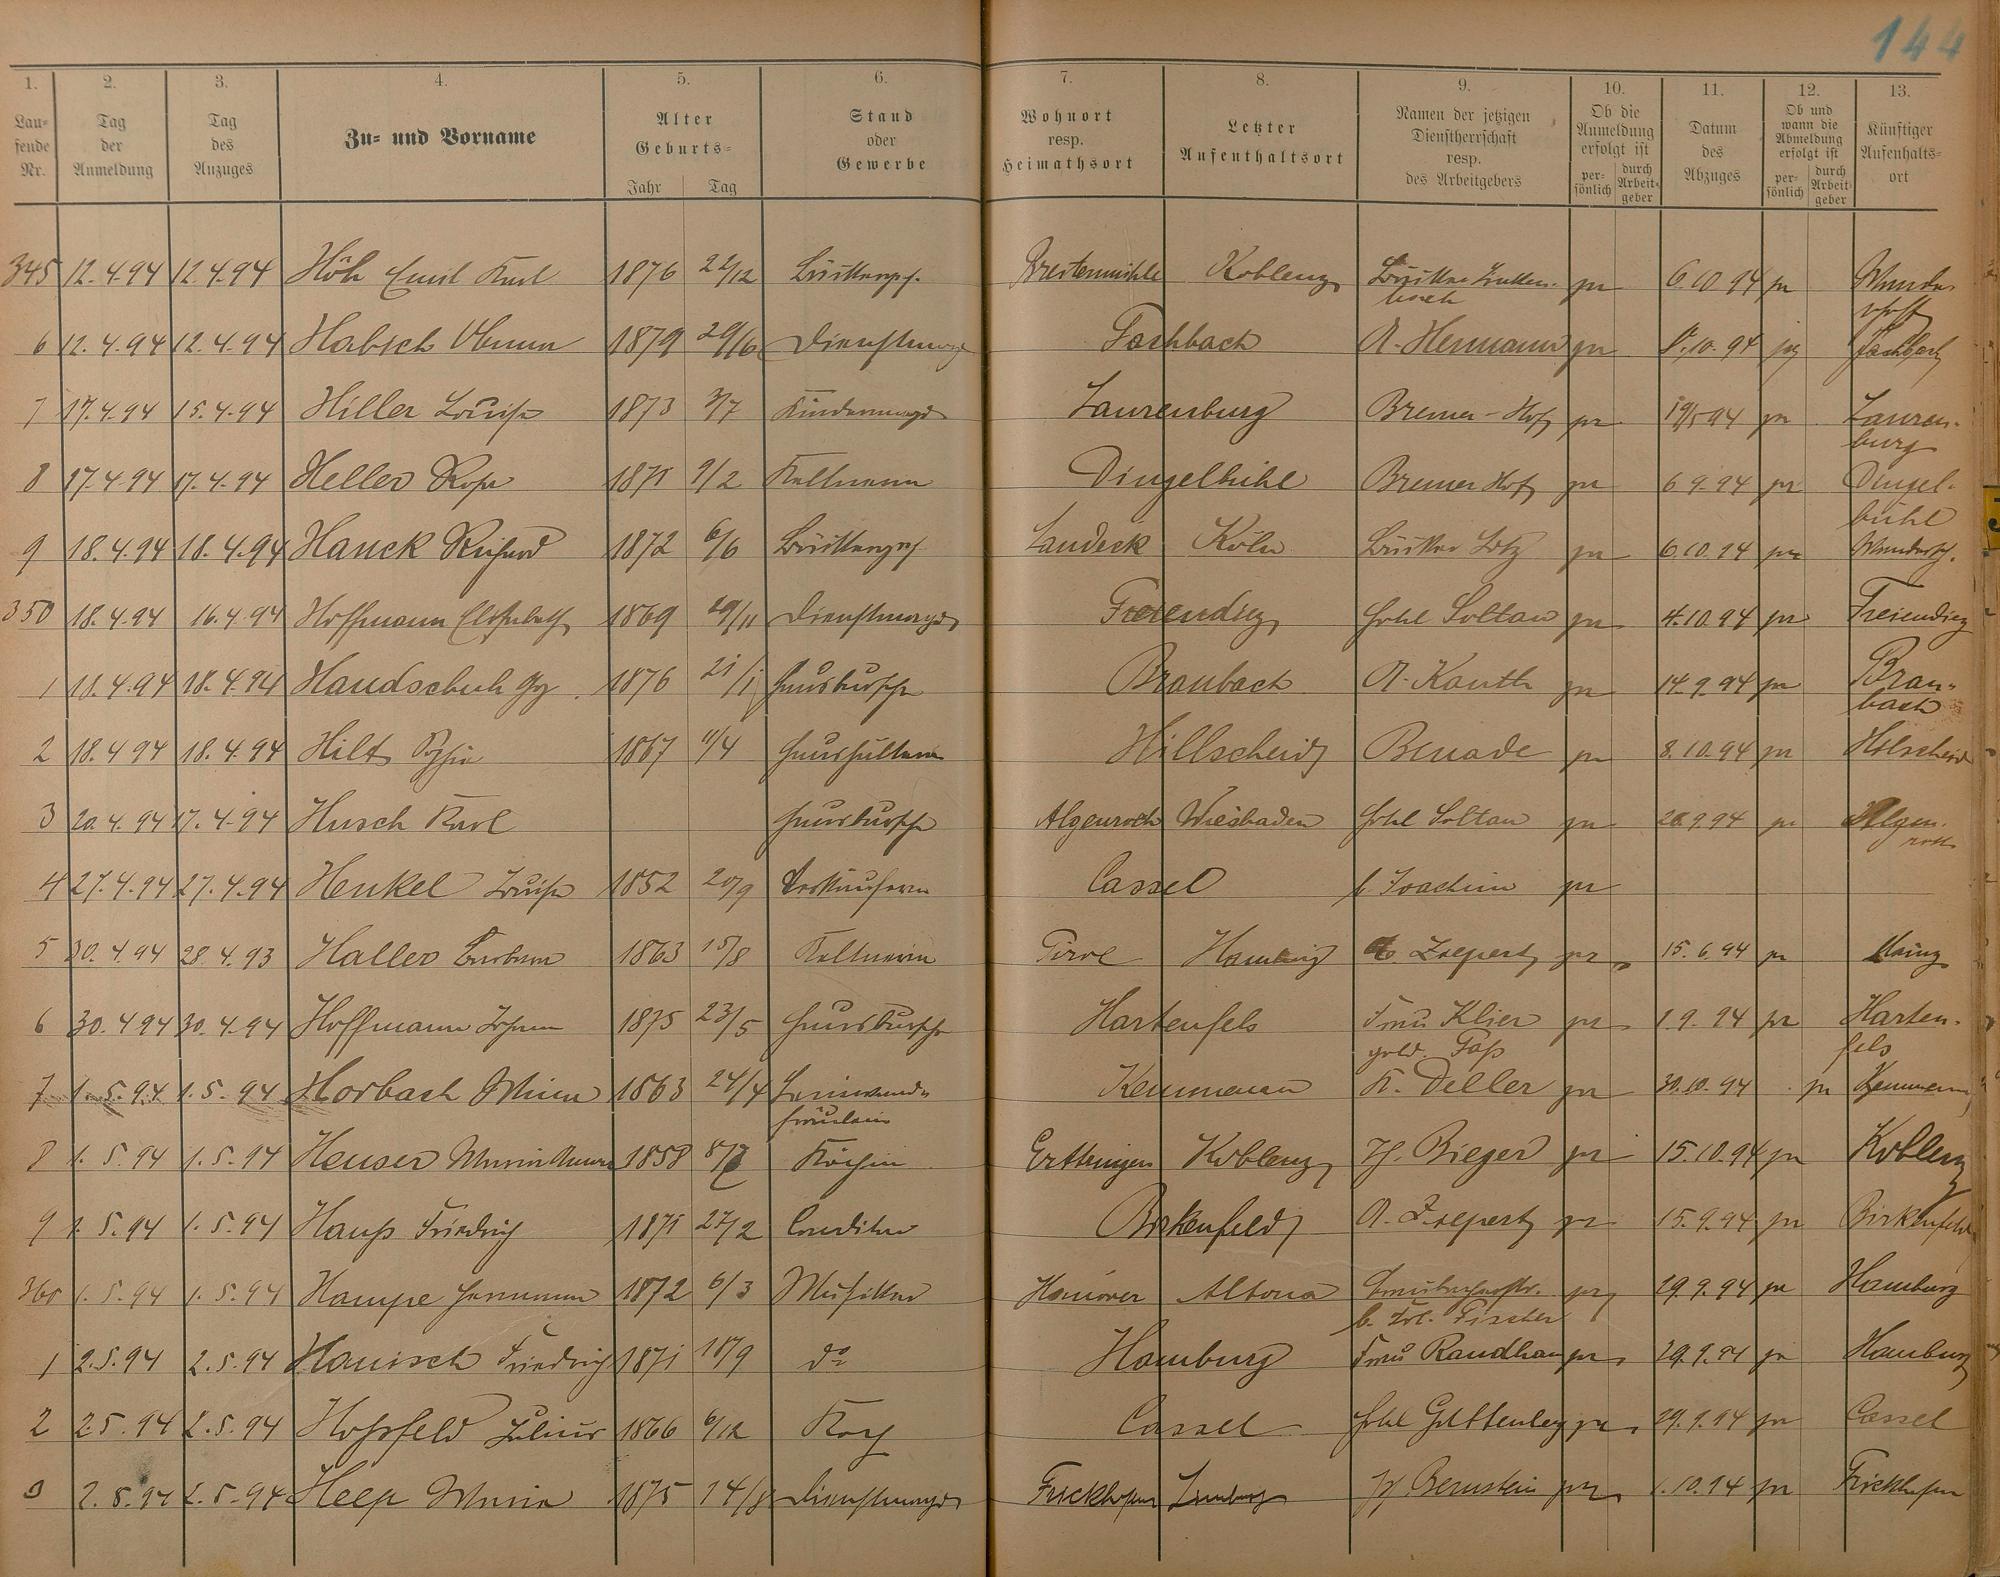 144
1. 2. 3. 4. 5. 6. 7. 8. 9. 10. 11. 12. 13.
Lau-
fende
Nr.
Tag
der
Anmeldung
Tag
des
Anzuges
Zu- und Vorname
Alter
Geburts-
Jahr Tag
Stand
oder
Gewerbe
Wohnort
resp.
Heimathsort
Letzter
Aufenthaltsort
Namen der jetzigen
Dienstherrschaft
resp.
des Arbeitgebers
Ob die
Anmeldung
erfolgt ist
per-
sönlich
durch
Arbeit-
geber
Datum
des
Abzuges
Ob und
wann die
Abmeldung
erfolgt ist
per-
sönlich
durch
Arbeit-
geber
Künftiger
Aufenthalts-
ort
345 12.4.94 12.4.94 Höh Emil Karl 1876 22/12 Koblenz pr 6.10.94 pr
6 12.4.94 12.4.94 Habsch 1879 29/6 Dienstmagd Fachbach A. Hermann pr 10.94 Fachbach
7 17.4.94 15.4.94 Hiller Louise 1873 Kindermagd Laurenburg Bremer-Hof pr pr Lauren-
burg
8 17.4.94 17.4.94 Heller Rosa 1871 9/2 Kellnerin Bremer Hof pr 6.9.94 pr Dingel-
bühl
9 18.4.94 18.4.94 Hauck Richard 1872 6/6 Landeck Köln Lotz pr 6.10.94 pr
350 18.4.94 16.4.94 Hoffmann Elisabeth 1869 29/11 Dienstmagd Freiendiez Hotel Soltau pr 4.10.94 pr Freiendiez
1 18.4.94 18.4.94 Handschuh Gg. 1876 21/1 Hausbursche Braubach A. Kauth pr 14.9.94 pr Brau-
bach
2 18.4.94 18.4.94 Hilt 1867 11/4 Haushälterin Hillscheid Benade pr 8.10.94 pr Hilscheid
3 20.4.94 17.4.94 Husch Karl Hausbursche Algenroth Wiesbaden Hotel Soltau pr 9.94 pr Algen-
roth
4 27.4.94 27.4.94 Henkel Louise 1852 20/9 Verkäuferin Cassel b Joachim pr
5 30.4.94 28.4.93 Haller Barbara 1863 15/8 Kellnerin Tirol pr 15.6.94 pr Mainz
6 30.4.94 30.4.94 Hoffmann Johann 1875 23/5 Hausbursche Hartenfels Frau Klier pr 1.9.94 pr Harten-
gold. Faß fels
7 1.5.94 1.5.94 Horbach Mina 1863 24/4 Kemmenau A. Deller pr 30.10.94 pr Kemmenau
fräulein
8 1.5.94 1.5.94 Heuser Maria Anna 1858 8/7 Köchin Koblenz H. Bieger pr 15.10.94 pr Koblenz
9 1.5.94 1.5.94 Hauß Friedrich 1871 27/2 Conditor Birkenfeld pr 15.9.94 pr Birkenfeld
360 1.5.94 1.5.94 Hampe Hermann 1872 6/3 Musiker Hanover Altona pr 29.9.94 pr Hamburg
b. Frl. Fischer
1 2.5.94 2.5.94 Hanisch Friedrich 1871 18/9 do Hamburg Frau pr 29.9.94 pr Hamburg
2 2.5.94 2.5.94 Hoßfeld Julius 1866 6/12 Koch Cassel Hotel Guttenberg pr 29.9.94 pr Cassel
3 2.5.94 2.5.94 Heep Maria 1875 14/8 Dienstmagd Frickhofen Limburg Bernstein pr 1.10.94 pr Frickhofen